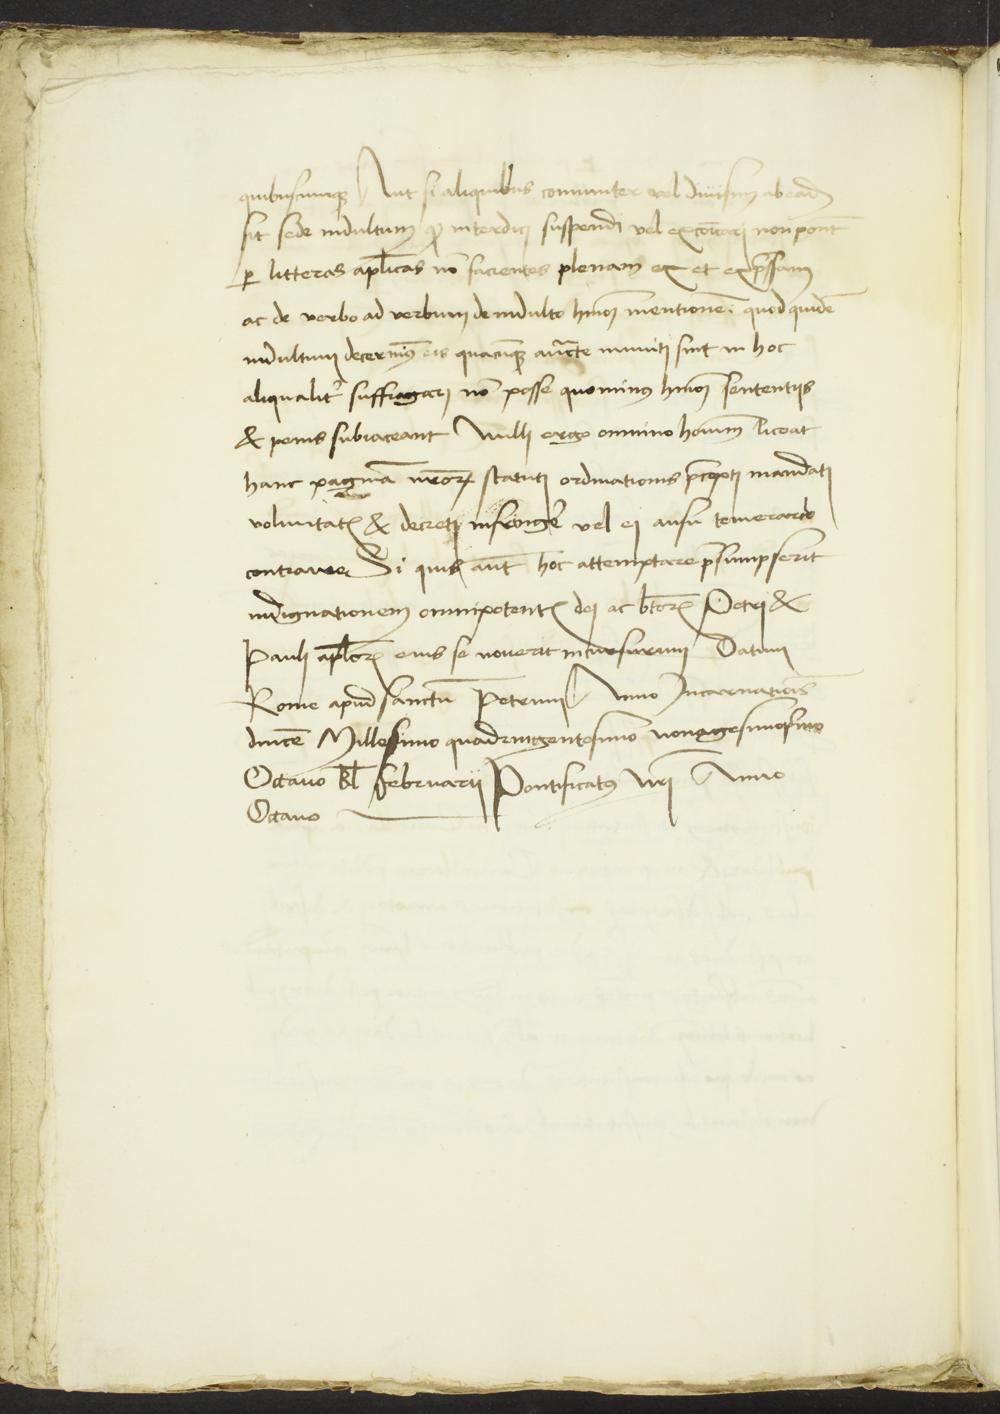 quibuscunq Aut si aliquibus comuniter vel diuisim ab eadē
sit sede indultum ꝙ interdici suspendi vel excōicari non pont
ꝑ litteras aplicas nō facientes plenam ex et expssam
ac de verbo ad verbum de indulto hmōi mentionē. quod quidē
indultum decernimꝰ eis quacunq auctte muniti sint in hoc
aliqualitr suffragari nō posse quominus hmōi sententijs
& penis subiaceant Nulli ergo omnino hoīum liceat
hanc paginā nrorꝝ statuti ordinationis p̄cepti mandati
voluntatꝭ & decreti infringe vel ei ausu temerario
contraire Si quis aut hoc attemptare p̄sumpserit
indignationem omnipotentꝭ dei ac btorꝝ Petri &
Pauli aplorꝝ eius se nouerit incursurum Datum
Rome apud sanctū Petrum Anno Incarnatiōis
dnice Millesimo quadringentesimo nonagesimoprimo
Octauo kl februarii Pontificatꝰ nri Anno
Octauo